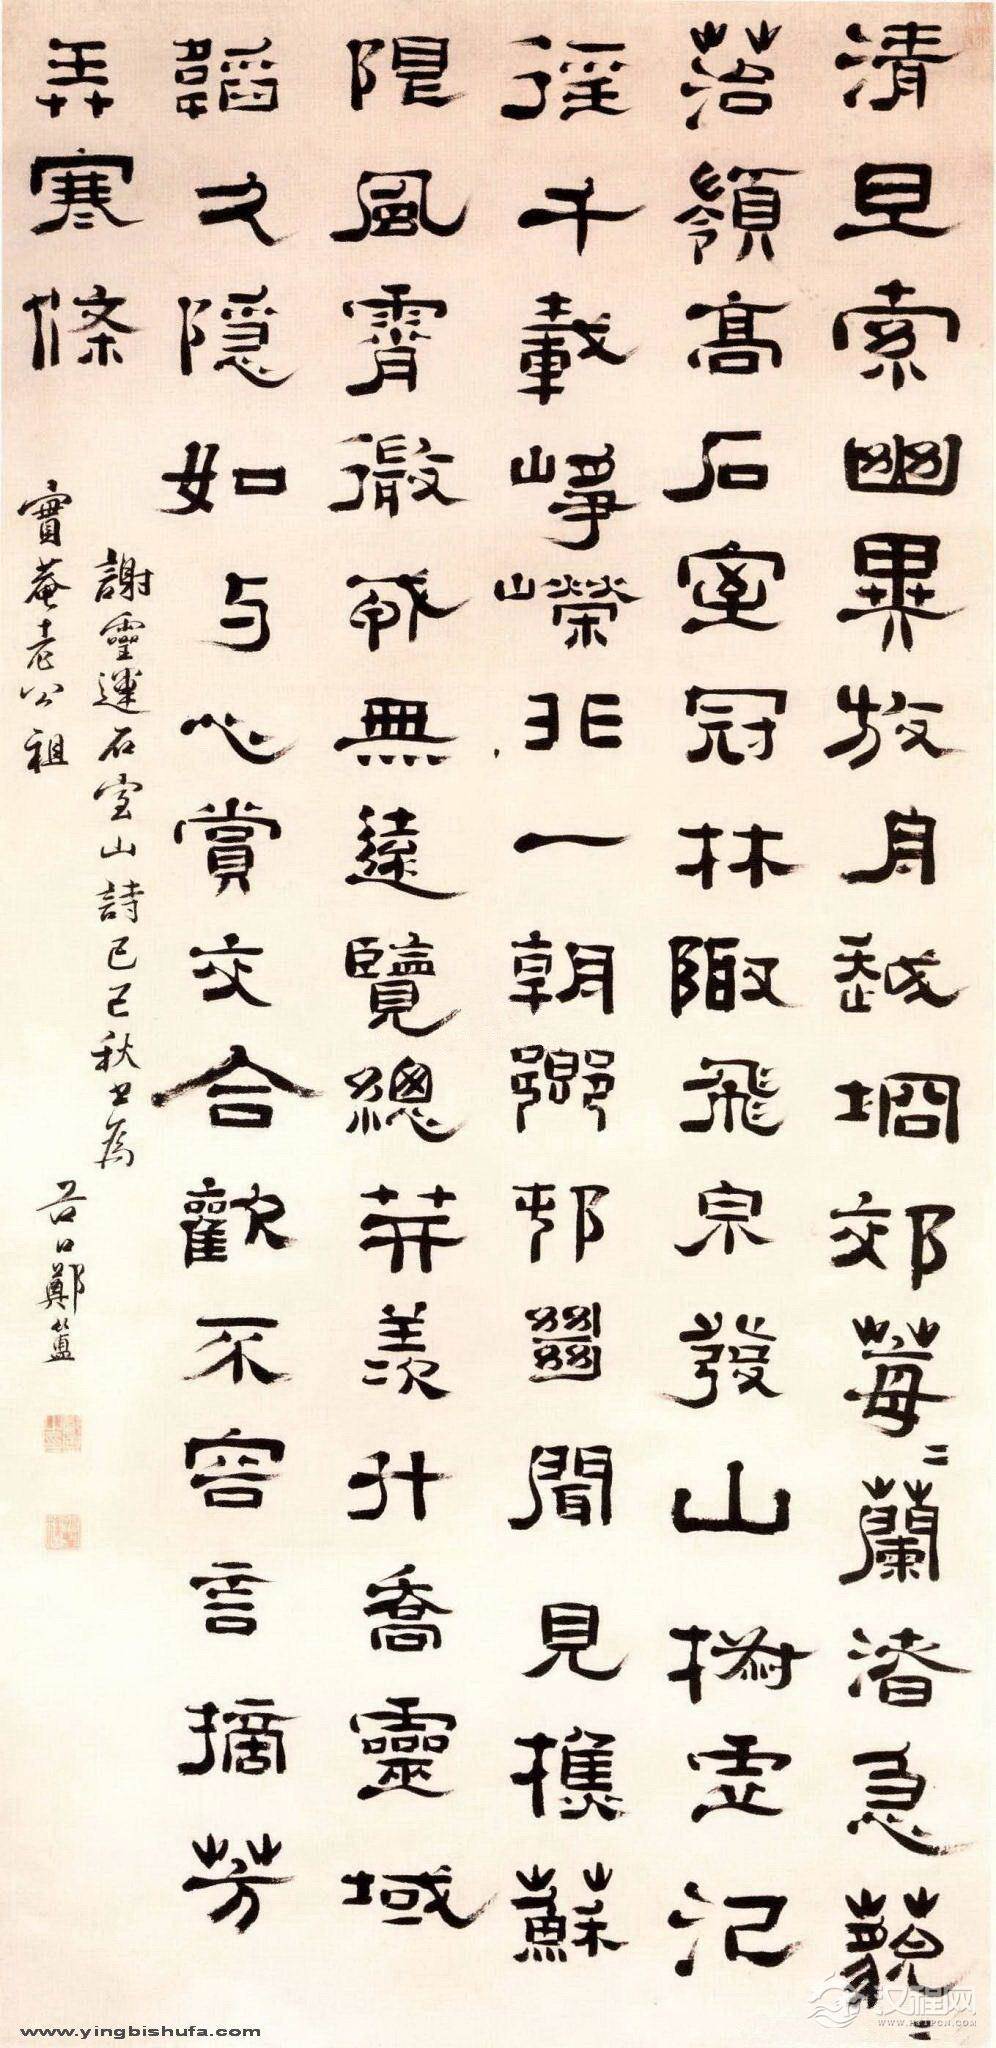 清旦索幽異放舟越坰郊莓二蘭渚急藐二
菭嶺高石室冠林陬飛泉發山椒虛汜
徑千載崢嶸非一朝鄉邨㡭聞見樵蘇
限風霄微戎無遠覽總笄羨升喬靈域
韜久隱如与心賞交合歡不容言摘芳
弄寒條
謝靈運石室山詩己巳秋書為
實菴老公祖
谷口鄭簠
汉程网
www.yingbishufa.com